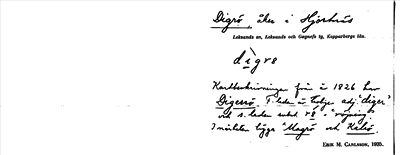 Digrö, åker i Hjortnäs
Leksands sn, Leksands och Gagnefs tg, Kopparbergs län.
digrø
Kartbeskrivningen från år 1826 har
Digerrö. F. leden är troligen adj. "diger"
och s. leden subst. rö = "röjning".
I närheten ligga "Magrö och Kalrö.
ERIK M. CARLSSON, 1935.